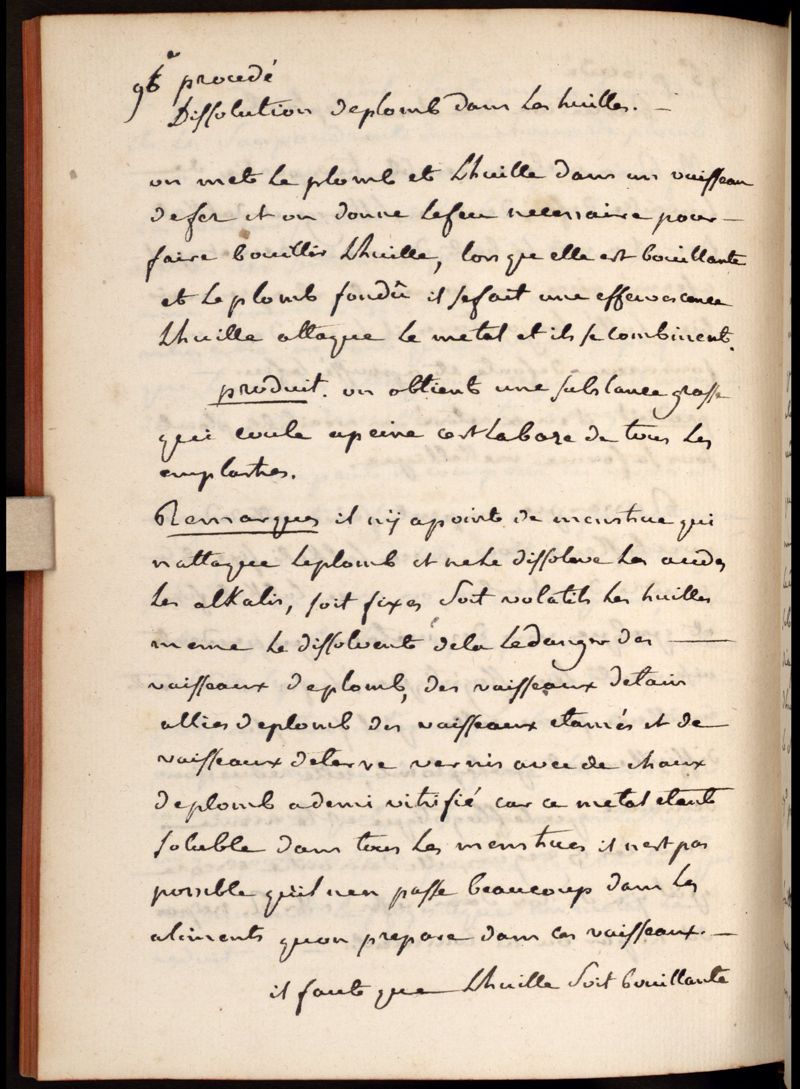 96e procedé
Dissolution de plomb dans les huilles. —
on met le plomb et Lhuille dans un vaisseau
de fer et on donne le feu necessaire pour —
faire bouillir Lhuille, lors que elle est bouillante
et le plomb fondû il se fait une effervescence
Lhuille attaque le metal et ils se combinent.
produit. on obtient une substance grasse
qui coule apeine cest la base de tous les
emplastres.
Remarques il nÿ a point de menstrue qui
nattaque le plomb et ne le dissolve les acides
les alkalis, soit fixes soit volatils les huilles
meme le dissolvent de la le danger des —
vaisseaux de plomb, des vaisseaux detain
alliés de plomb des vaisseaux etamés et de
vaisseaux de terre vernis avec de chaux
de plomb a demi vitrifié car ce metal etant
soluble dans tous les menstrues il nest pas
possible quil nen passe beaucoup dans les
aliments quon prepare dans ces vaisseaux. —
il faut que Lhuille soit bouillante